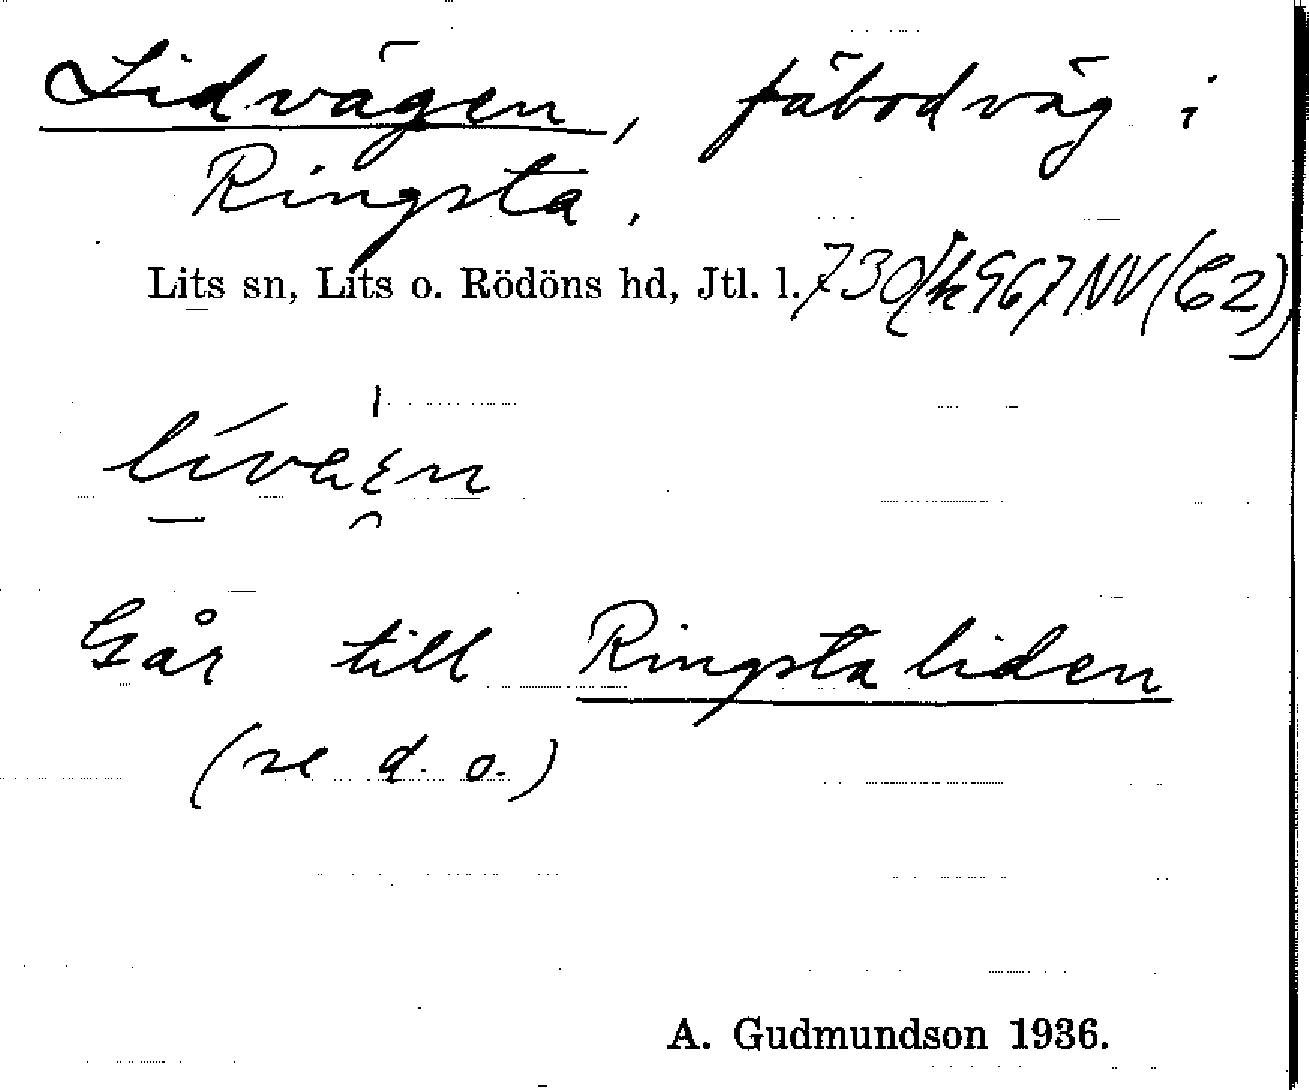 Lidvägen, fäbodväg i
Ringsta.
Lits sn, Lits o. Rödöns hd, Jtl. l.
Går till Ringstaliden
(se d. o.)
A. Gudmundson 1936.